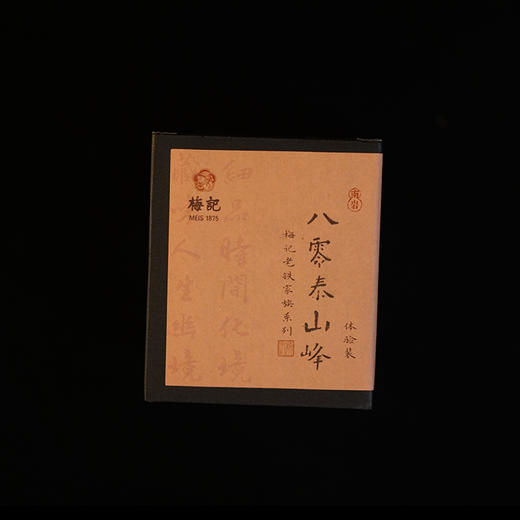 梅記
MEIS 1875
八零泰山峰
梅记老铁家族系列
体验装
細品時間化境
藏步人生幽境